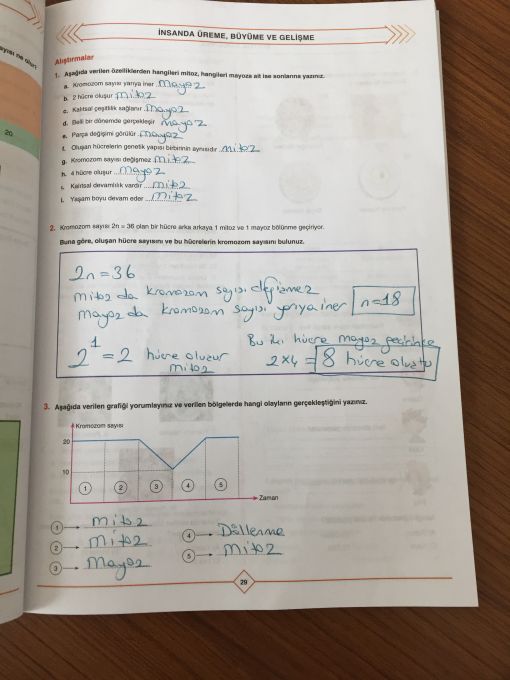 İNSANDA ÜREME, BÜYÜME VE GELİŞME
Alıştırmalar
1. Aşağıda verilen özelliklerden hangileri mitoz, hangileri mayoza ait ise sonlarına yazınız.
a. Kromozom sayısı yarıya iner mayoz
b. 2 hücre oluşur mitoz
c. Kalıtsal çeşitlilik sağlanır mayoz
d. Belli bir dönemde gerçekleşir mayoz
e. Parça değişimi görülür mayoz
f. Oluşan hücrelerin genetik yapısı birbirinin aynısıdır mitoz
g. Kromozom sayısı değişmez mitoz
h. 4 hücre oluşur mayoz
ı. Kalıtsal devamlılık vardır mitoz
i. Yaşam boyu devam eder mitoz
20
2. Kromozom sayısı 2n = 36 olan bir hücre arka arkaya 1 mitoz ve 1 mayoz bölünme geçiriyor.
Buna göre, oluşan hücre sayısını ve bu hücrelerin kromozom sayısını bulunuz.
2n = 36
mitoz da kromozom sayısı değişmez
mayoz da kromozom sayısı yarıya iner n=18
2¹ = 2 hücre oluzur
mitoz
Bu iki hücre mayoz geçirince
2x4 = 8 hücre oluştu
3. Aşağıda verilen grafiği yorumlayınız ve verilen bölgelerde hangi olayların gerçekleştiğini yazınız.
Kromozom sayısı
20
10
1 2 3 4 5
Zaman
1 → mitoz
2 → mitoz
3 → mayoz
4 → Döllenme
5 → mitoz
29